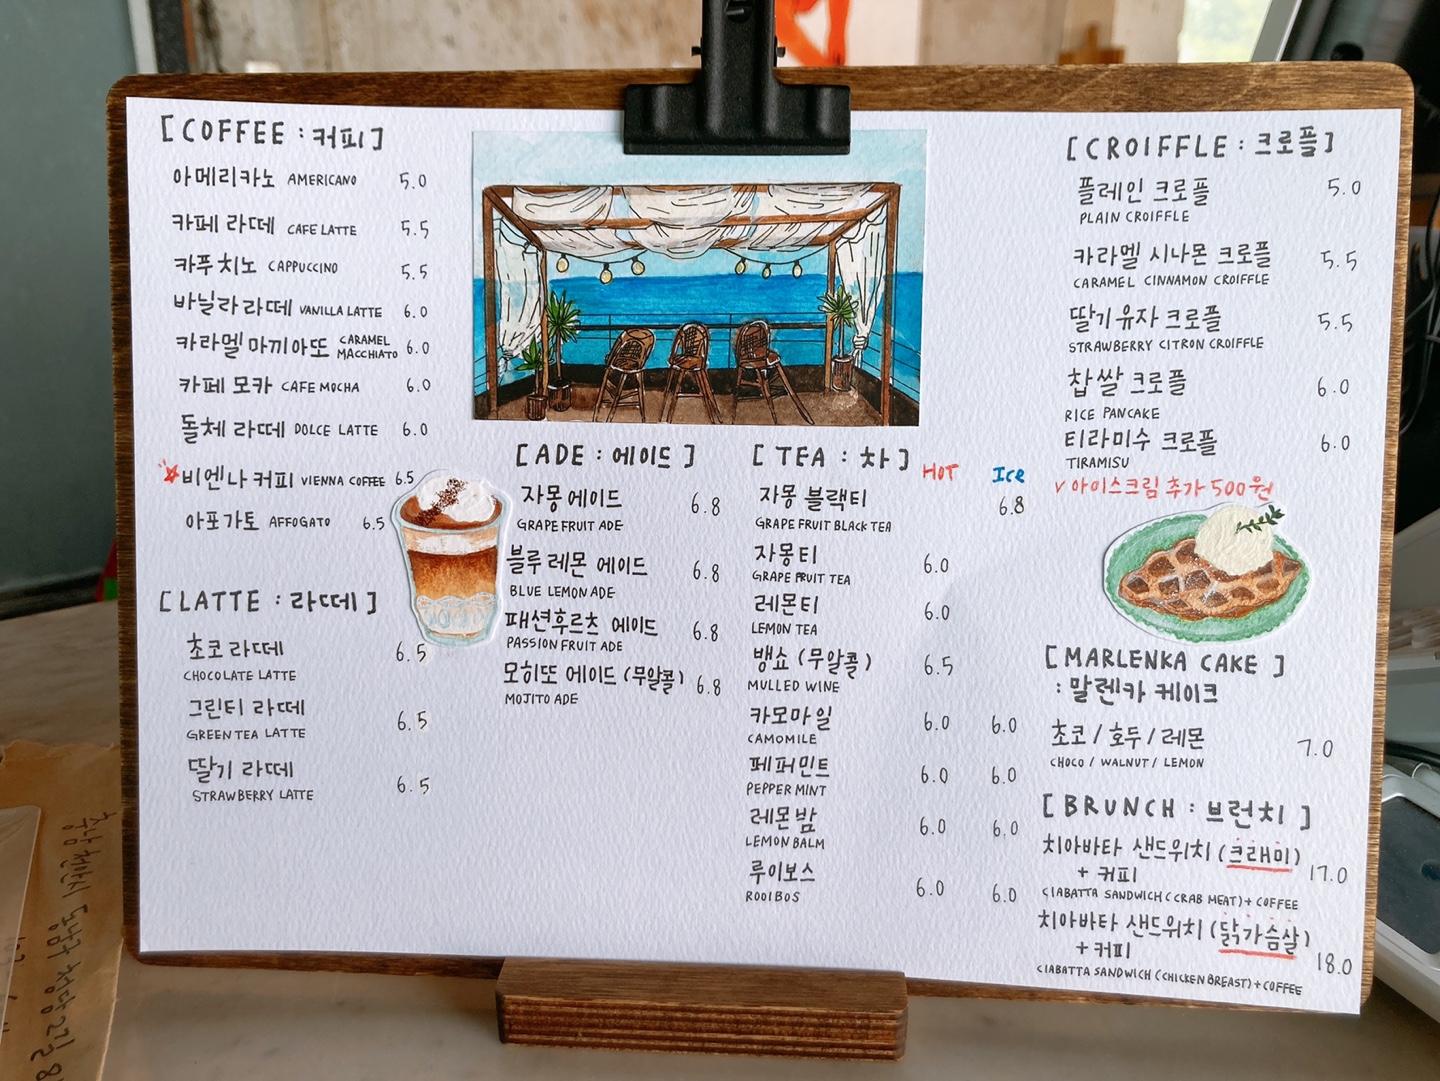 [COFFEE : 커피]
아메리카노 AMERICANO 5.0
카페 라떼 CAFE LATTE 5.5
카푸치노 CAPPUCCINO 5.5
바닐라 라떼 VANILLA LATTE 6.0
카라멜 마끼아또 CARAMEL MACCHIATO 6.0
카페 모카 CAFE MOCHA 6.0
돌체 라떼 DOLCE LATTE 6.0
비엔나 커피 VIENNA COFFEE 6.5
아포가토 AFFOGATO 6.5
[LATTE : 라떼]
초코 라떼 6.5
CHOCOLATE LATTE
그린티 라떼 6.5
GREEN TEA LATTE
딸기 라떼 6.5
STRAWBERRY LATTE
[ADE : 에이드]
자몽 에이드 6.8
GRAPE FRUIT ADE
블루 레몬 에이드 6.8
BLUE LEMON ADE
패션후르츠 에이드 6.8
PASSION FRUIT ADE
모히또 에이드 (무알콜) 6.8
MOJITO ADE
[TEA : 차] HOT Ice
자몽 블랙티 6.8
GRAPE FRUIT BLACK TEA
자몽티 6.0
GRAPE FRUIT TEA
레몬티 6.0
LEMON TEA
뱅쇼 (무알콜) 6.5
MULLED WINE
카모마일 6.0 6.0
CAMOMILE
페퍼민트 6.0 6.0
PEPPER MINT
레몬밤 6.0 6.0
LEMON BALM
루이보스 6.0 6.0
ROOIBOS
[CROIFFLE : 크로플]
플레인 크로플 5.0
PLAIN CROIFFLE
카라멜 시나몬 크로플 5.5
CARAMEL CINNAMON CROIFFLE
딸기유자 크로플 5.5
STRAWBERRY CITRON CROIFFLE
찹쌀 크로플 6.0
RICE PANCAKE
티라미수 크로플 6.0
TIRAMISU
✓아이스크림 추가 500원
[MARLENKA CAKE]
: 말렌카 케이크
초코 / 호두 / 레몬 7.0
CHOCO / WALNUT / LEMON
[BRUNCH : 브런치]
치아바타 샌드위치 (크래미)
+ 커피 17.0
CIABATTA SANDWICH (CRAB MEAT) + COFFEE
치아바타 샌드위치 (닭가슴살)
+ 커피 18.0
CIABATTA SANDWICH (CHICKEN BREAST) + COFFEE